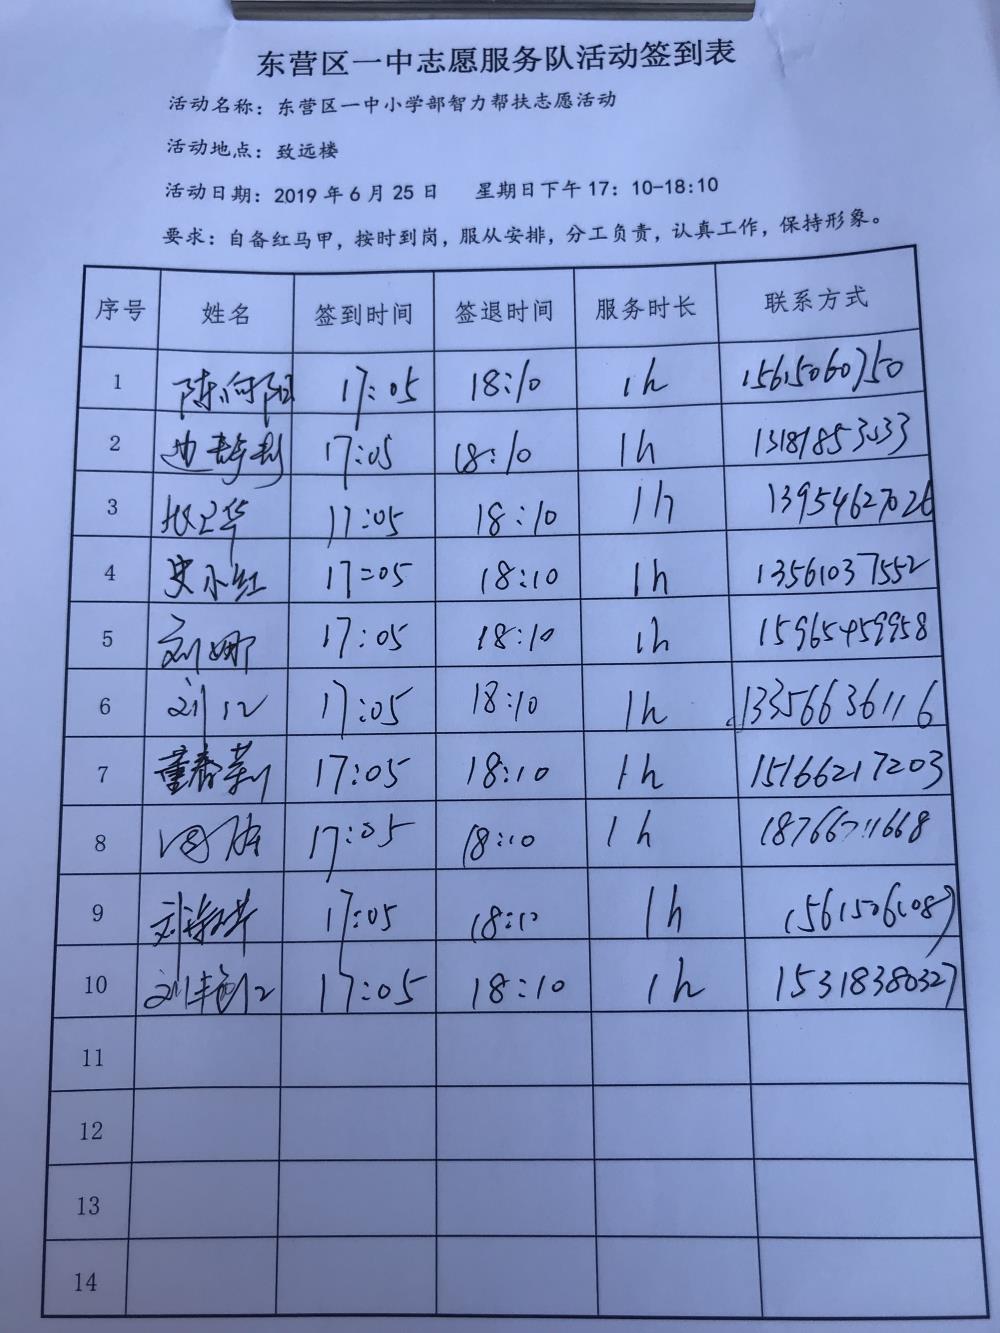 东营区一中志愿服务队活动签到表
活动名称：东营区一中小学部智力帮扶志愿活动
活动地点：致远楼
活动日期：2019 年 6 月 25 日 星期日下午 17：10-18:10
要求：自备红马甲，按时到岗，服从安排，分工负责，认真工作，保持形象。
序号 姓名 签到时间 签退时间 服务时长 联系方式
1 陈向阳 17:05 18:10 1h 15615060750
2 17:05 18:10 1h
3 17:05 18:10 1h 13954627026
4 史小红 17:05 18:10 1h 13561037552
5 刘娜 17:05 18:10 1h 15965459958
6 刘江 17:05 18:10 1h 13356636116
7 董春莉 17:05 18:10 1h 15166217203
8 17:05 18:10 1h 18766711668
9 17:05 18:10 1h 15615061087
10 17:05 18:10 1h 15318380327
11
12
13
14